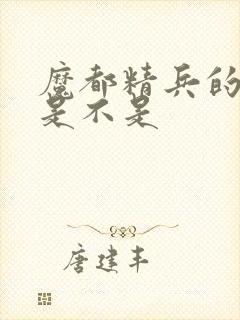 魔都精兵的
是不是
唐建丰